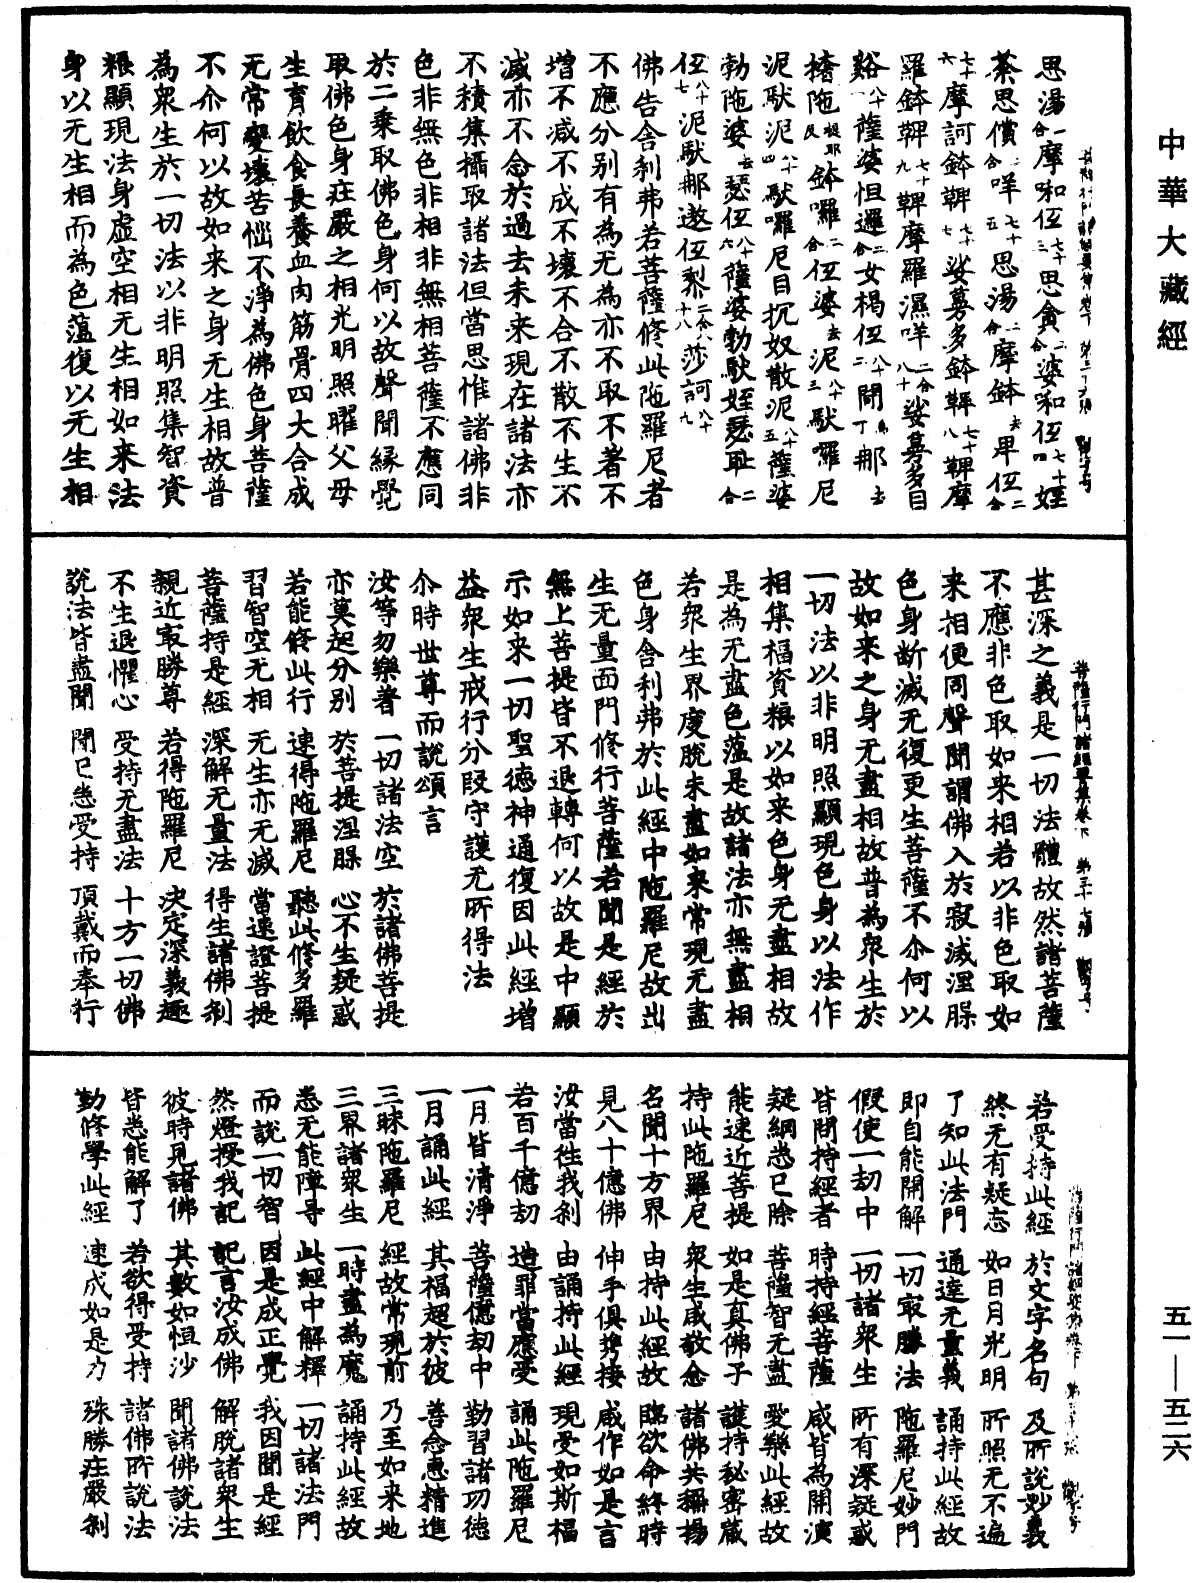 中華大藏經
思湯二合一摩啝伍七十三思貪二合婆啝伍七十四姪
荼思儻二合咩七十五思湯二合摩鉢去卑伍二合
七十六摩訶鉢鞞七十七娑蓦多鉢鞞七十八鞞摩
羅鉢鞞七十九鞞摩羅濕咩二合八十娑蓦多目
谿八十一薩婆怛邏二合女楬伍八十二閞丁那去
擔陁提耶反鉢囉二合伍婆去泥八十三馱囉尼
泥馱泥八十四馱囉尼目抗奴散泥八十五薩婆
勃陁婆去瑟伍八十六薩婆勃馱姪瑟耻二合
伍八十七泥馱那遨伍梨二合八十八莎訶八十九
佛告舍利弗若菩薩修此陁羅尼者
不應分別有為无為亦不取不著不
增不減不成不壞不合不散不生不
滅亦不念於過去未來現在諸法亦
不積集攝取諸法但當思惟諸佛非
色非無色非相非無相菩薩不應同
於二乘取佛色身何以故聲聞緣覺
取佛色身莊嚴之相光明照曜父母
生育飲食長養血肉筋骨四大合成
无常變壞苦惱不淨為佛色身菩薩
不尒何以故如來之身无生相故普
為衆生於一切法以非明照集智資
糧顯現法身虛空相无生相如來法
身以无生相而為色蕰復以无生相
菩薩行門諸經要集卷下
甚深之義是一切法體故然諸菩薩
不應非色取如來相若以非色取如
来相便同聲聞謂佛入於寂滅涅槃
色身斷滅无復更生菩薩不尒何以
故如來之身无盡相故普為衆生於
一切法以非明照顯現色身以法作
相集福資糧以如來色身无盡相故
是為无盡色蕰是故諸法亦無盡相
若衆生界度脫未盡如來常現无盡
色身舍利弗於此經中陁羅尼故出
生无量面門修行菩薩若聞是經於
無上菩提皆不退轉何以故是中顯
示如來一切聖德神通復因此經增
益衆生戒行分段守護无所得法
尒時世尊而說頌言
汝等勿樂著 一切諸法空 於諸佛菩提
亦莫起分別 於菩提涅槃 心不生疑惑
若能脩此行 速得陁羅尼 聽此修多羅
習智空无相 无生亦无滅 當速證菩提
菩薩持是經 深解无量法 得生諸佛剎
親近冣勝尊 若得陁羅尼 決定深義趣
不生退懼心 受持无盡法 十方一切佛
說法皆盡聞 聞已悉受持 頂戴而奉行
若受持此經 於文字名句 及所說妙義
終无有疑忘 如日月光明 所照无不遍
了知此法門 通達无量義 誦持此經故
即自能開解 一切冣勝法 陁羅尼妙門
假使一劫中 一切諸衆生 所有深疑惑
皆問持經者 時持經菩薩 咸皆為開演
疑網悉已除 菩薩智无盡 愛樂此經故
能速近菩提 如是真佛子 護持秘密藏
持此陁羅尼 衆生咸敬念 諸佛共稱揚
名聞十方界 由持此經故 臨欲命終時
見八十億佛 伸手俱携接 咸作如是言
汝當往我剎 由誦持此經 現受如斯福
若百千億劫 造罪當應受 誦此陁羅尼
一月皆清淨 菩薩億劫中 勤習諸功德
一月誦此經 其福超於彼 善念惠精進
三昧陁羅尼 經故常現前 乃至如來地
三界諸衆生 一時盡為魔 誦持此經故
悉无能障㝵 此經中解釋 一切諸法門
而說一切智 因是成正覺 我因聞是經
然燈授我記 記言汝成佛 解脫諸衆生
彼時見諸佛 其數如恒沙 聞諸佛說法
皆悉能解了 若欲得受持 諸佛所說法
勤修學此經 速成如是力 殊勝莊嚴剎
五一—五二六